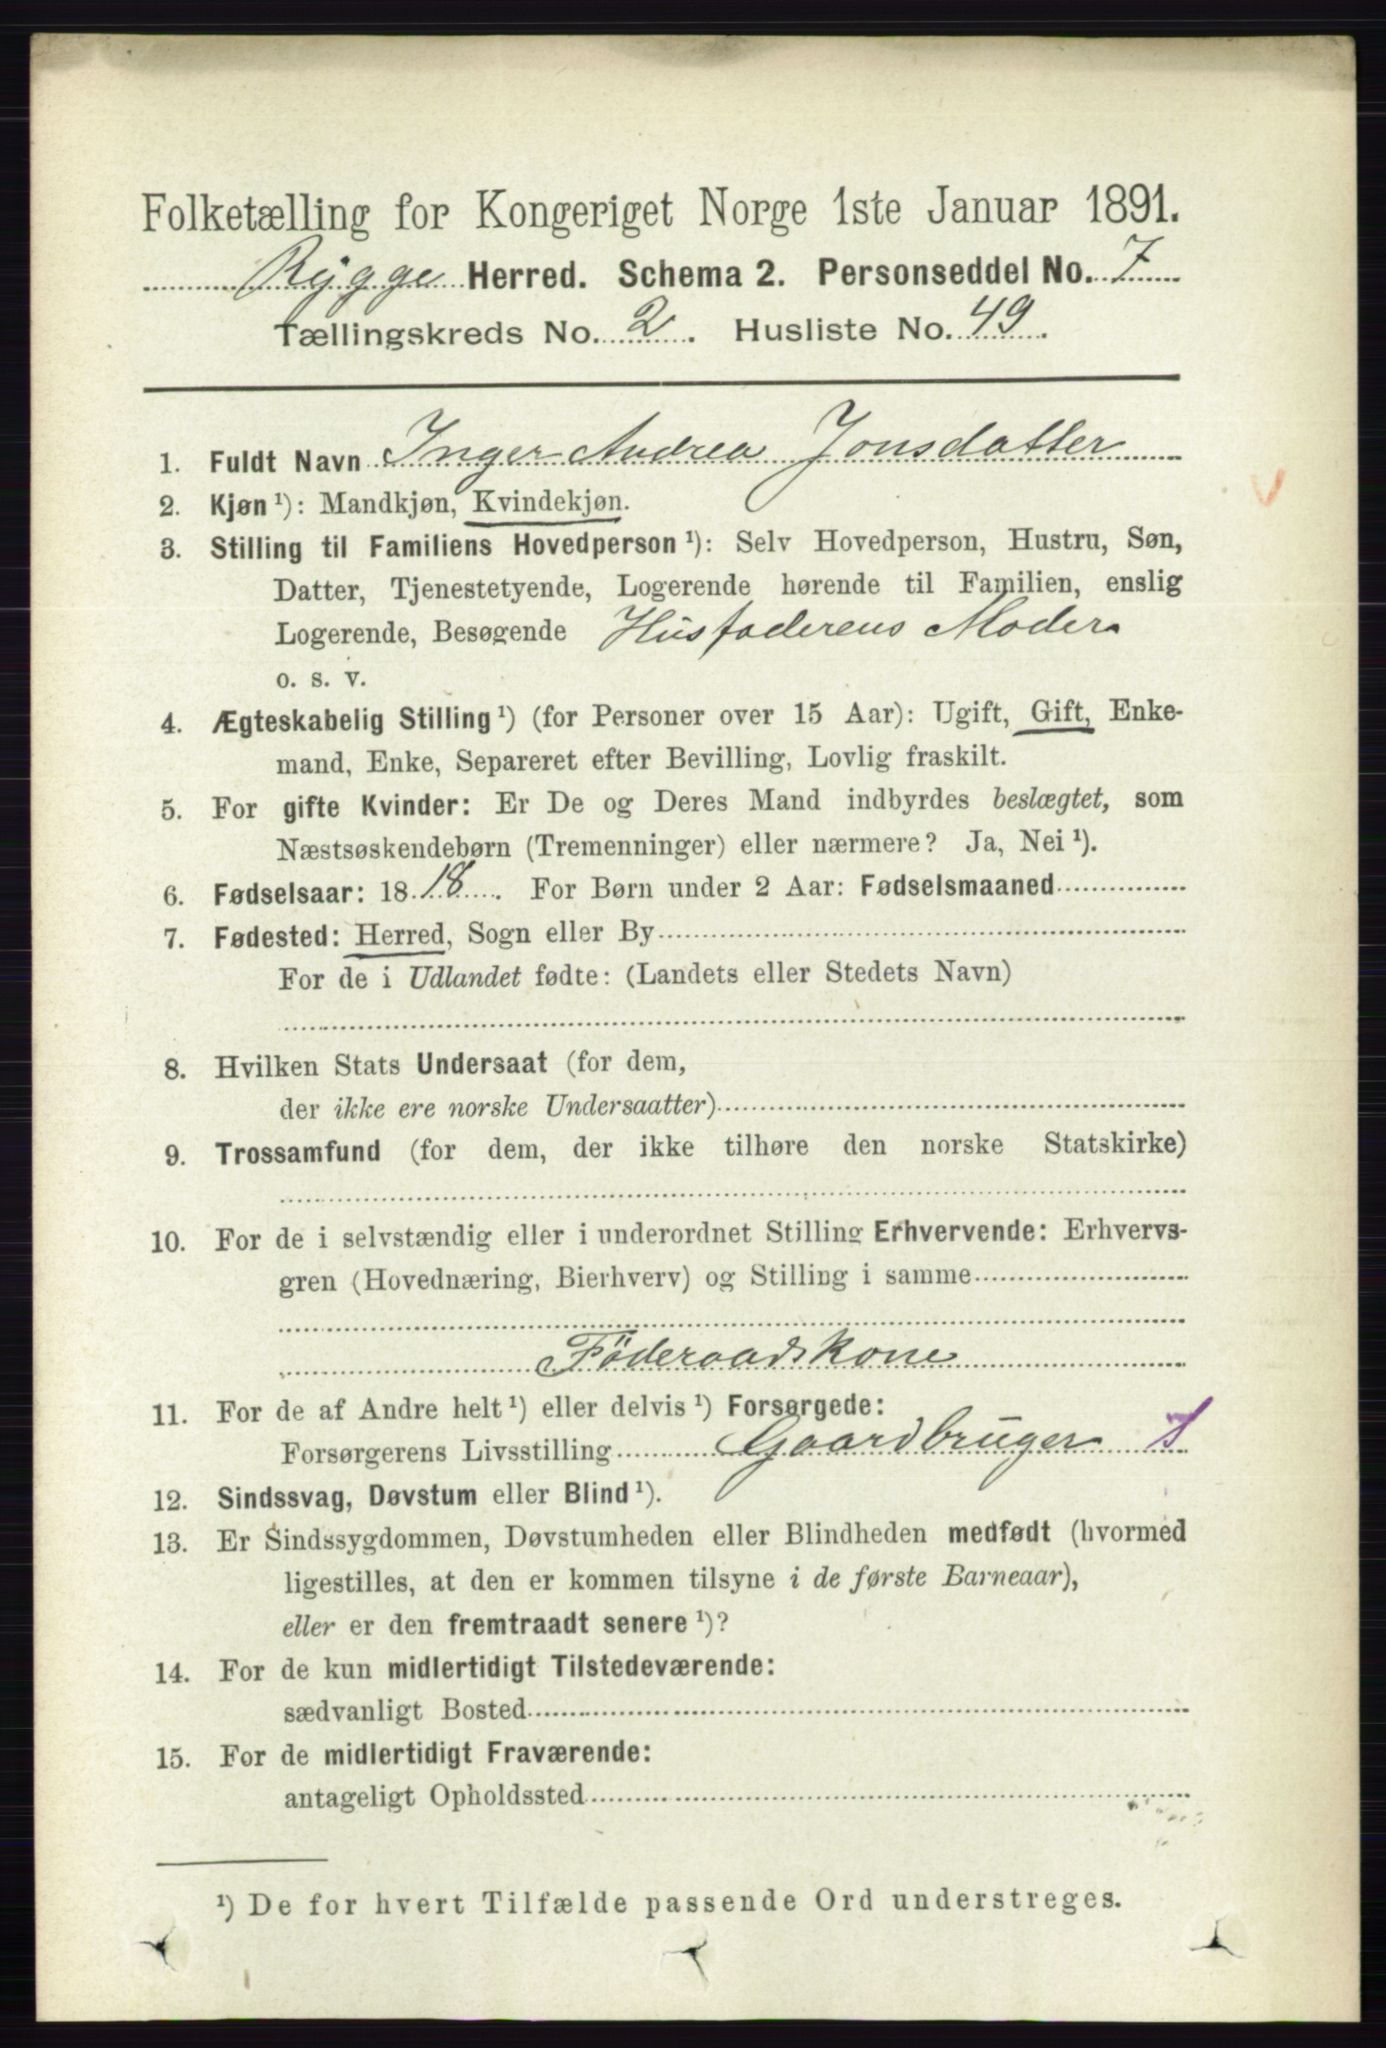 Folketælling for Kongeriget Norge 1ste Januar 1891.
Rygge Herred. Schema 2. Personseddel No. 7
Tællingskreds No. 2. Husliste No. 49.
1. Fuldt Navn Inger Andrea Jonsdatter
2. Kjøn ¹): Mandkjøn, Kvindekjøn.
3. Stilling til Familiens Hovedperson ¹): Selv Hovedperson, Hustru, Søn,
Datter, Tjenestetyende, Logerende hørende til Familien, enslig
Logerende, Besøgende Husfaderens Moder
o. s. v.
4. Ægteskabelig Stilling ¹) (for Personer over 15 Aar): Ugift, Gift, Enke-
mand, Enke, Separeret efter Bevilling, Lovlig fraskilt.
5. For gifte Kvinder: Er De og Deres Mand indbyrdes beslægtet, som
Næstsøskendebørn (Tremenninger) eller nærmere? Ja, Nei ¹).
6. Fødselsaar: 1818. For Børn under 2 Aar: Fødselsmaaned
7. Fødested: Herred, Sogn eller By
For de i Udlandet fødte: (Landets eller Stedets Navn)
8. Hvilken Stats Undersaat (for dem,
der ikke ere norske Undersaatter)
9. Trossamfund (for dem, der ikke tilhøre den norske Statskirke)
10. For de i selvstændig eller i underordnet Stilling Erhvervende: Erhvervs-
gren (Hovednæring, Bierhverv) og Stilling i samme
Föderaadskone
11. For de af Andre helt ¹) eller delvis ¹) Forsørgede:
Forsørgerens Livsstilling Gaardbruger
12. Sindssvag, Døvstum eller Blind ¹).
13. Er Sindssygdommen, Døvstumheden eller Blindheden medfødt (hvormed
ligestilles, at den er kommen tilsyne i de første Barneaar),
eller er den fremtraadt senere ¹)?
14. For de kun midlertidigt Tilstedeværende:
sædvanligt Bosted
15. For de midlertidigt Fraværende:
antageligt Opholdssted
¹) De for hvert Tilfælde passende Ord understreges.